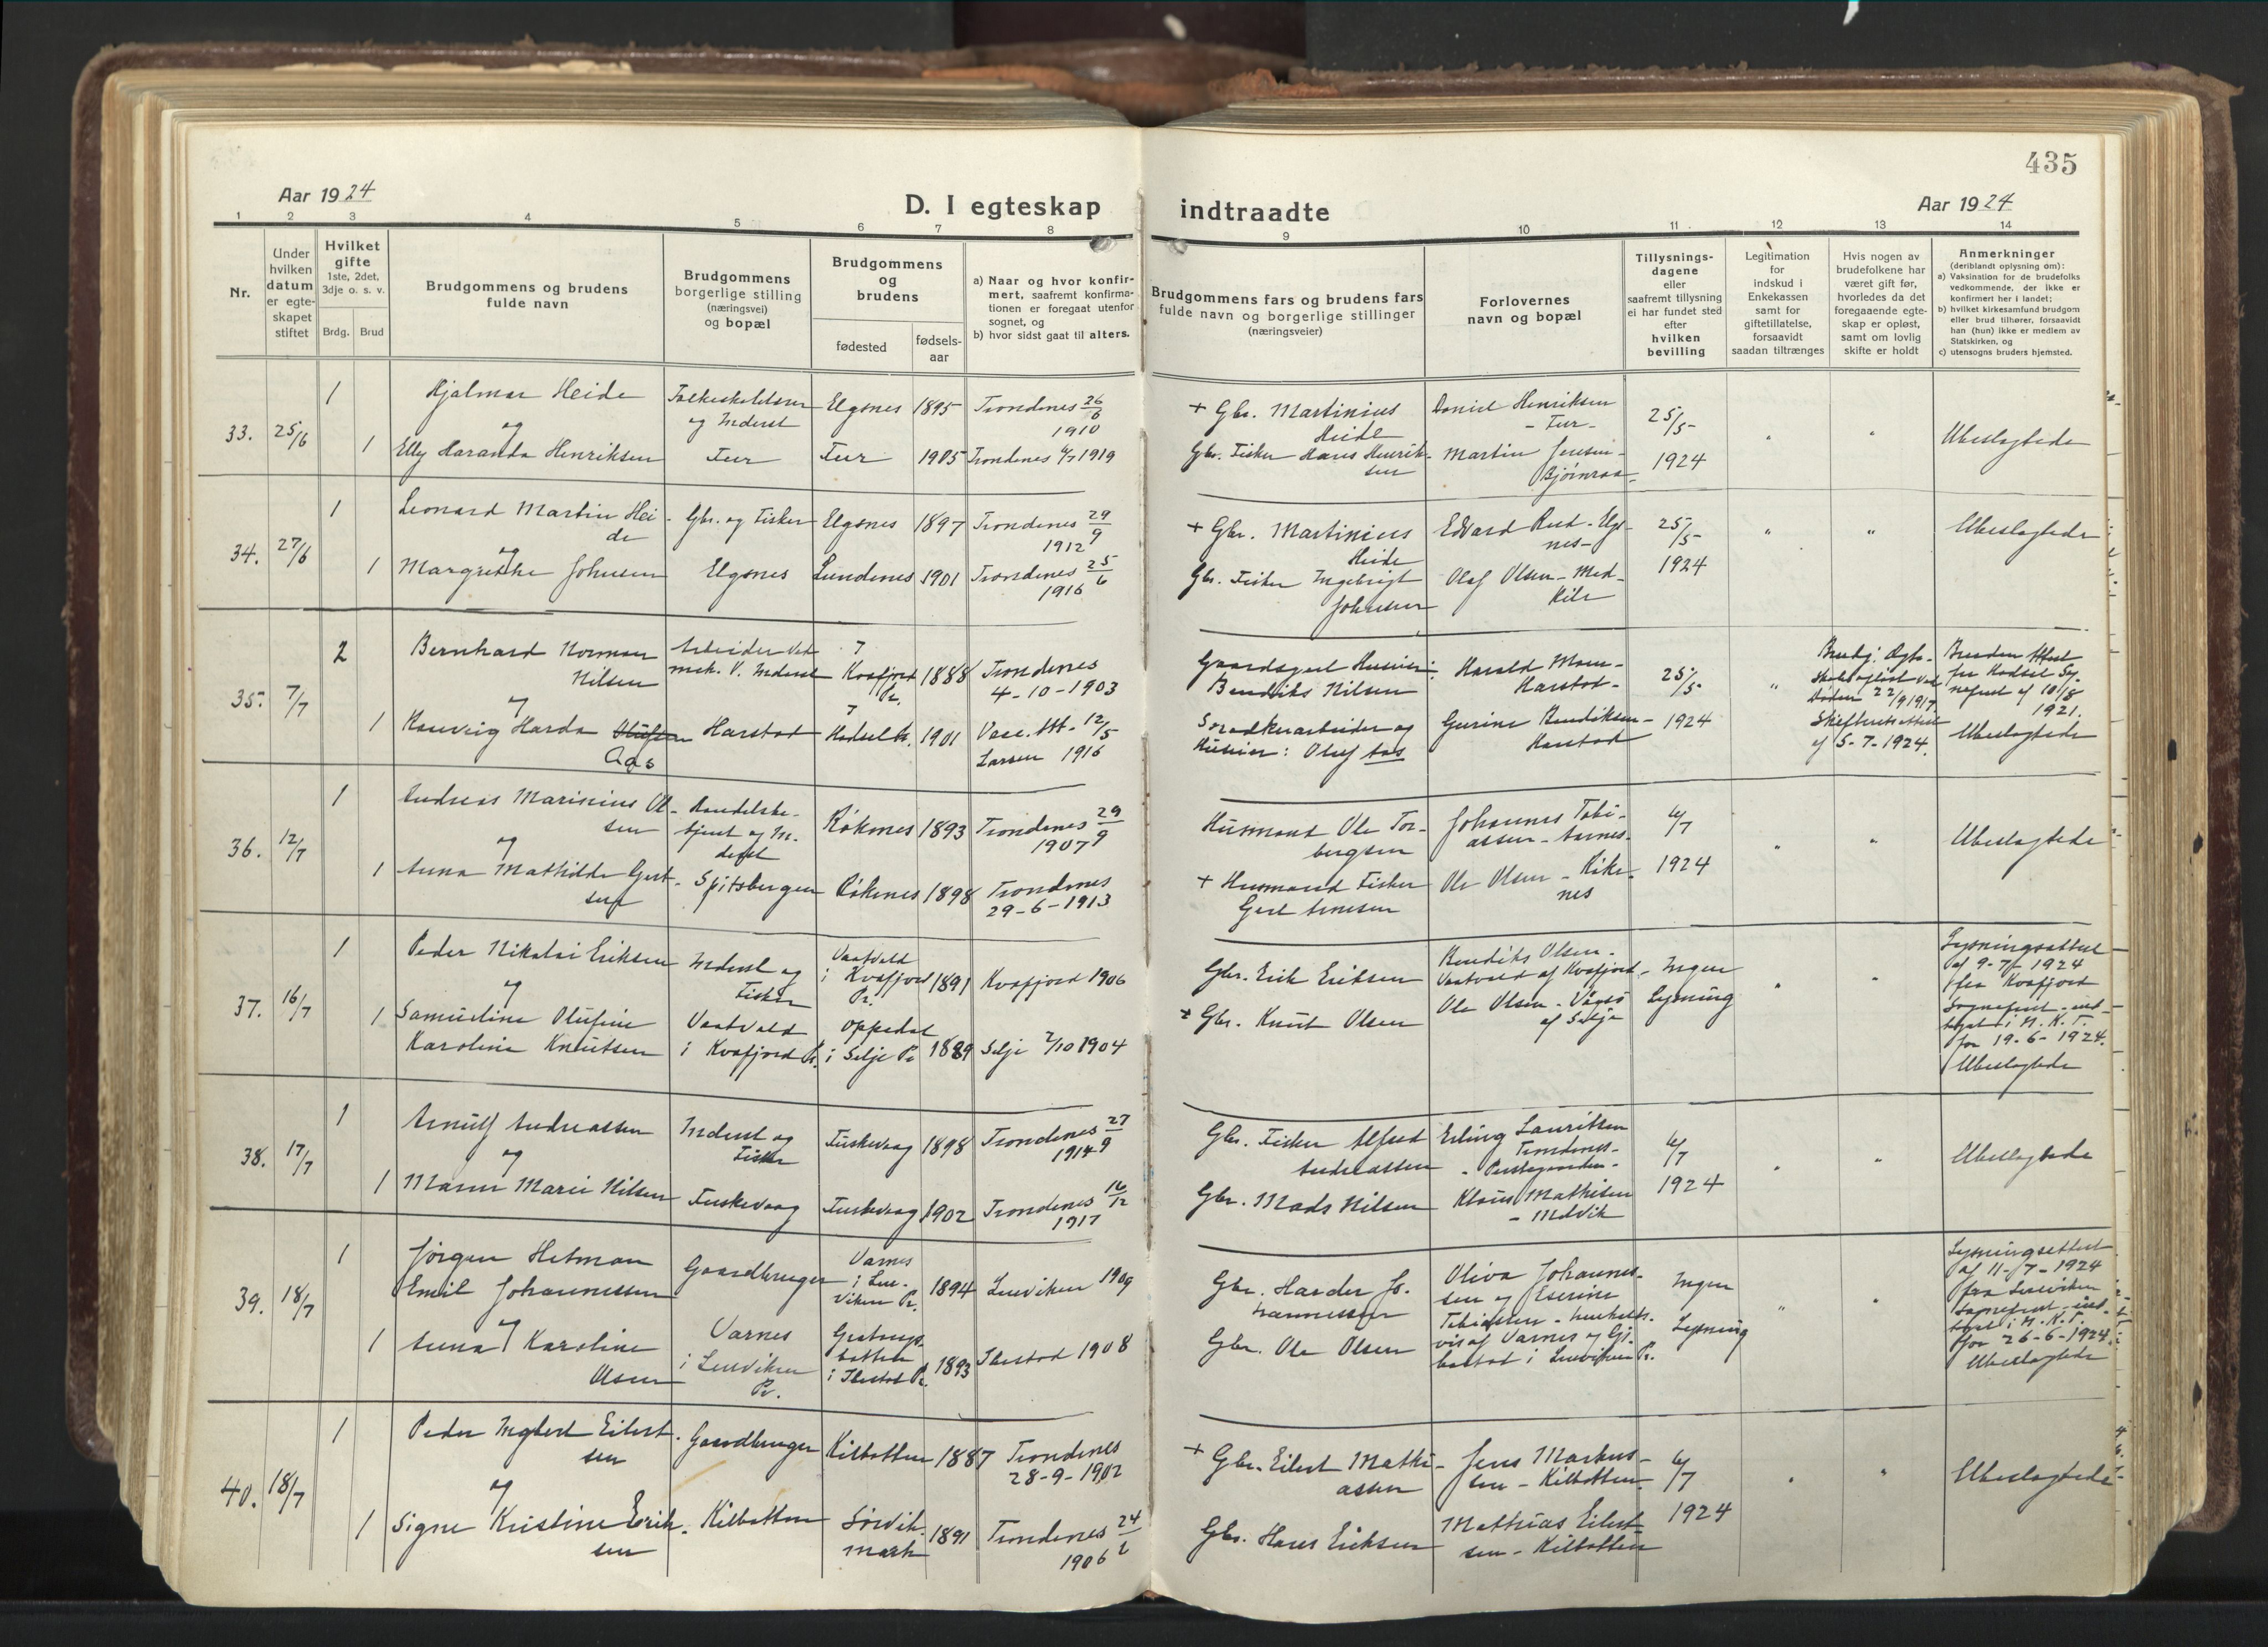 435
Aar 1924
D. I egteskap
indtraadte
Aar 1924
1 2 3 4 5 6 7 8 9 10 11 12 13 14
Nr.
Under
hvilken
datum
er egte-
skapet
stiftet
Hvilket
gifte
1ste, 2det,
3dje o. s. v.
Brdg. Brud
Brudgommens og brudens
fulde navn
Brudgommens
borgerlige stilling
(næringsvei)
og bopæl
Brudgommens
og
brudens
fødested
fødsels-
aar
a) Naar og hvor konfir-
mert, saafremt konfirma-
tionen er foregaat utenfor
sognet, og
b) hvor sidst gaat til alters.
Brudgommens fars og brudens fars
fulde navn og borgerlige stillinger
(næringsveier)
Forlovernes
navn og bopæl
Tillysnings-
dagene
eller
saafremt tillysning
ei har fundet sted
efter
hvilken
bevilling
Legitimation
for
indskud i
Enkekassen
samt for
giftetillatelse,
forsaavidt
saadan tiltrænges
Hvis nogen av
brudefolkene har
været gift før,
hvorledes da det
foregaaende egte-
skap er opløst,
samt om lovlig
skifte er holdt
Anmerkninger
(deriblandt oplysning om):
a) Vaksination for de brudefolks
vedkommende, der ikke er
konfirmert her i landet;
b) hvilket kirkesamfund brudgom
eller brud tilhører, forsaavidt
han (hun) ikke er medlem av
Statskirken, og
c) utensogns bruders hjemsted.
33. 25/6
1 Hjalmar Heide
og Inderst
Elgsnes 1895 Trondenes 26/6
1910
og
1 Elly Haranda Henriksen
1905 Trondenes 1919
+ Gbr. Martinius
Heide
Gbr. Fisker Hans Henrik-
sen
Daniel Henriksen
Martin Jensen -
25/5-
1924
" "
Ubeslegtede
34. 27/6
1 Leonard Martin Hei-
de
Gbr. og Fisker Elgsnes 1897 Trondenes 29/9
1912
og
1 Margrethe Johnsen
Elgsnes Lundenes 1901 Trondenes 25/6
1916
+ Gbr. Martinius
Heide
Gbr. Fisker Ingebrigt
Johnsen
Edvard Rud - Elgs-
nes -
Olaf Olsen - Med-
kile
25/5-
1924
" "
Ubeslegtede
35. 7/7
2 Bernhard Norman
Nilsen
Arbeider ved
mek. V. Inderst
i
Kvæfjord
Pr.
1888 Trondenes
4-10-1903
og
1 Harda
Aas
Harstad
i
Hadsel
1901
12/5
Larsen 1916
Bendiks Nilsen
Oluf Aas
Harald
Harstad -
Bendiksen -
Harstad
25/5
1924
"
Døden 22/9 1917.
Skifteretsattest
af 5-7-1924.
Bruden
fra Hadsel Sg.
10/8
1921.
Ubeslegtede
36. 12/7
1 Andreas Marinius Ol-
sen
Handelsbe-
tjent og In-
derst
Røkenes 1893 Trondenes 29/9
1907
og
1 Anna Mathilde Gert-
sen
Spitsbergen Røkenes 1898 Trondenes
29-6-1913
Husmand Ole Tor-
bergsen
+ Husmand Fisker
Gert Arnesen
Johannes Tobi-
assen - Aarnes -
Ole Olsen - Røke-
nes
6/7
1924
" "
Ubeslegtede
37. 16/7
1 Peder Nikolai Eriksen
Inderst og
Fisker
i Kvæfjord
Pr.
1891 Kvæfjord 1906
og
1 Samueline Olufine
Karoline Knutsen
i Kvæfjord Pr.
Oppedal
i Selje Pr.
1889 Selje 2/10 1904
Gbr. Erik Eriksen
+ Gbr. Knut Olsen
Bendiks Olsen -
af Kvæfjord
Ole Olsen - Vågsø
af Selje
Ingen
Lysning
" "
Lysningsattest
af 9-7-1924
fra Kvæfjord
Sogneprest - ind-
taget i N. K. T.
for 19-6-1924.
Ubeslegtede
38. 17/7
1 Arnulf Andreassen
Inderst og
Fisker
Fuskevaag 1898 Trondenes 27/9
1914
og
1 Marie Nilsen
Fuskevaag Fuskevaag 1902 Trondenes 16/12
1917
Gbr. Fisker Alfred
Andreassen
Gbr. Mads Nilsen
Erling Lauritsen
Trondenes -
- Prestegaarden -
Klaus Mathisen
- Medvik
6/7
1924
" "
Ubeslegtede
39. 18/7
1 Jørgen Hetman
Emil Johannessen
Gaardbruger
Varnes
i Len-
viken Pr.
1894 Lenviken 1909
og
1 Anna Karoline
Olsen
Varnes
i Lenviken
Pr.
botten
i Ibestad Pr.
1893 Ibestad 1908
Gbr. Haarder Jo-
hannessen
Gbr. Ole Olsen
Oliva Johannes-
sen og Eserine
Tobiassen - henholds-
vis af Varnes og Gi-
bostad i Lenviken Pr.
Ingen
Lysning
" "
Lysningsattest
af 11-7-1924
fra Lenviken
Sogneprest - ind-
taget i N. K. T.
for 26-6-1924.
Ubeslegtede
40. 18/7
1 Peder Ingbert Eilert-
sen
Gaardbruger Kilbotten 1887 Trondenes
28-9-1902
og
1 Signe Kristine Erik-
sen
Kilbotten Sørvik-
mark
1891 Trondenes 24/6
1906
+ Gbr. Eilert Mathi-
assen
Gbr. Hans Eriksen
Jens Markus-
sen - Kilbotten
Mathias Eilert-
sen - Kilbotten
6/7
1924
" "
Ubeslegtede